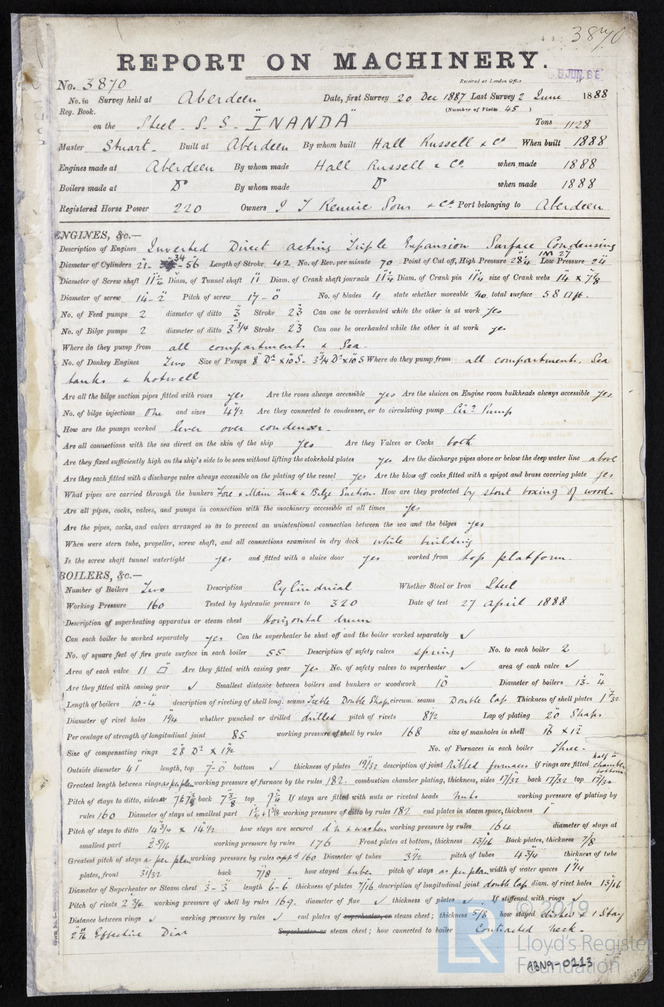 3870
REPORT ON MACHINERY.
No. 3870
Received at London Office
No. in Survey held at Aberdeen Date, first Survey 20 Dec 1887 Last Survey 2 June 1888
Reg. Book. (Number of Visits 45)
on the Steel S.S. "INANDA" Tons 1128
Master Stuart. Built at Aberdeen By whom built Hall Russell & Co When built 1888
Engines made at Aberdeen By whom made Hall Russell & Co. when made 1888
Boilers made at Do By whom made Do when made 1888
Registered Horse Power 220 Owners J T Rennie Sons & Co. Port belonging to Aberdeen
ENGINES, &c.—
Description of Engines Inverted Direct acting Triple Expansion Surface Condensing
Diameter of Cylinders 21- 34 -56 Length of Stroke 42 No. of Rev. per minute 70 Point of Cut off, High Pressure 28¼ Low Pressure 24
Diameter of Screw shaft 11½ Diam. of Tunnel shaft 11 Diam. of Crank shaft journals 11¼ Diam. of Crank pin 11¼ size of Crank webs 14 x 7⅛
Diameter of screw 14-2 Pitch of screw 17-0 No. of blades 4 state whether moveable no total surface 58 □ft.
No. of Feed pumps 2 diameter of ditto 3 Stroke 23 Can one be overhauled while the other is at work yes
No. of Bilge pumps 2 diameter of ditto 3¾ Stroke 23 Can one be overhauled while the other is at work yes
Where do they pump from all compartments & Sea.
No. of Donkey Engines Two Size of Pumps 8 Do x 10 S - 3¾ Do x 10 S Where do they pump from all compartments, Sea
tanks & hotwell
Are all the bilge suction pipes fitted with roses yes Are the roses always accessible yes Are the sluices on Engine room bulkheads always accessible yes
No. of bilge injections One and sizes 4½ Are they connected to condenser, or to circulating pump Cir. Pump
How are the pumps worked lever over condenser.
Are all connections with the sea direct on the skin of the ship Yes Are they Valves or Cocks both
Are they fixed sufficiently high on the ship's side to be seen without lifting the stokehold plates yes Are the discharge pipes above or below the deep water line above
Are they each fitted with a discharge valve always accessible on the plating of the vessel yes Are the blow off cocks fitted with a spigot and brass covering plate yes
What pipes are carried through the bunkers Fore & Main Tank & Bilge Suction. How are they protected by stout boxing of wood.
Are all pipes, cocks, valves, and pumps in connection with the machinery accessible at all times yes
Are the pipes, cocks, and valves arranged so as to prevent an unintentional connection between the sea and the bilges yes
When were stern tube, propeller, screw shaft, and all connections examined in dry dock while building
Is the screw shaft tunnel watertight yes and fitted with a sluice door yes worked from top platform.
BOILERS, &c.—
Number of Boilers Two Description Cylindrical Whether Steel or Iron Steel
Working Pressure 160 Tested by hydraulic pressure to 320 Date of test 27 April 1888
Description of superheating apparatus or steam chest Horizontal drum
Can each boiler be worked separately yes Can the superheater be shut off and the boiler worked separately ✓
No. of square feet of fire grate surface in each boiler 55 Description of safety valves spring No. to each boiler 2
Area of each valve 11 □ Are they fitted with easing gear Yes No. of safety valves to superheater ✓ area of each valve ✓
Are they fitted with easing gear ✓ Smallest distance between boilers and bunkers or woodwork 10 Diameter of boilers 13-4
Length of boilers 10-4 description of riveting of shell long. seams Treble Double Strap circum. seams Double Lap Thickness of shell plates 1 3/32
Diameter of rivet holes 1¼ whether punched or drilled drilled pitch of rivets 8½ Lap of plating 20 Straps
Per centage of strength of longitudinal joint 85 working pressure of shell by rules 168 size of manholes in shell 16 x 12
Size of compensating rings 28 Do x 1½ No. of Furnaces in each boiler Three.
Outside diameter 41 length, top 7-0 bottom ✓ thickness of plates 19/32 description of joint Ribbed furnaces if rings are fitted
Greatest length between rings as per plan working pressure of furnace by the rules 182. combustion chamber plating, thickness, sides 17/32 back 17/32 top 17/32
Pitch of stays to ditto, sides back 7⅜ top 7¼ If stays are fitted with nuts or riveted heads Nuts working pressure of plating by
rules 160 Diameter of stays at smallest part working pressure of ditto by rules 182 end plates in steam space, thickness 1
Pitch of stays to ditto 14¾ x 14½ how stays are secured working pressure by rules 164 diameter of stays at
smallest part 2 5/16 working pressure by rules 176 Front plates at bottom, thickness 13/16 Back plates, thickness 7/8
Greatest pitch of stays as per plan working pressure by rules 160 Diameter of tubes 3½ pitch of tubes 4¾ thickness of tube
plates, front 31/32 back 7/8 how stayed tubes pitch of stays as per plan width of water spaces 1¼
Diameter of Superheater or Steam chest 3-3 length 6-6 thickness of plates 7/16 description of longitudinal joint double lap diam. of rivet holes 13/16
Pitch of rivets 2¾ working pressure of shell by rules 169. diameter of flue ✓ thickness of plates ✓ If stiffened with rings ✓
Distance between rings ✓ working pressure by rules ✓ end plates of superheater, or steam chest; thickness 5/8 how stayed dished & 1 Stay
2½ Effective Diar Superheater or steam chest; how connected to boiler Contracted neck.
© 2019
Lloyd's Register
Foundation
ABN9-0213